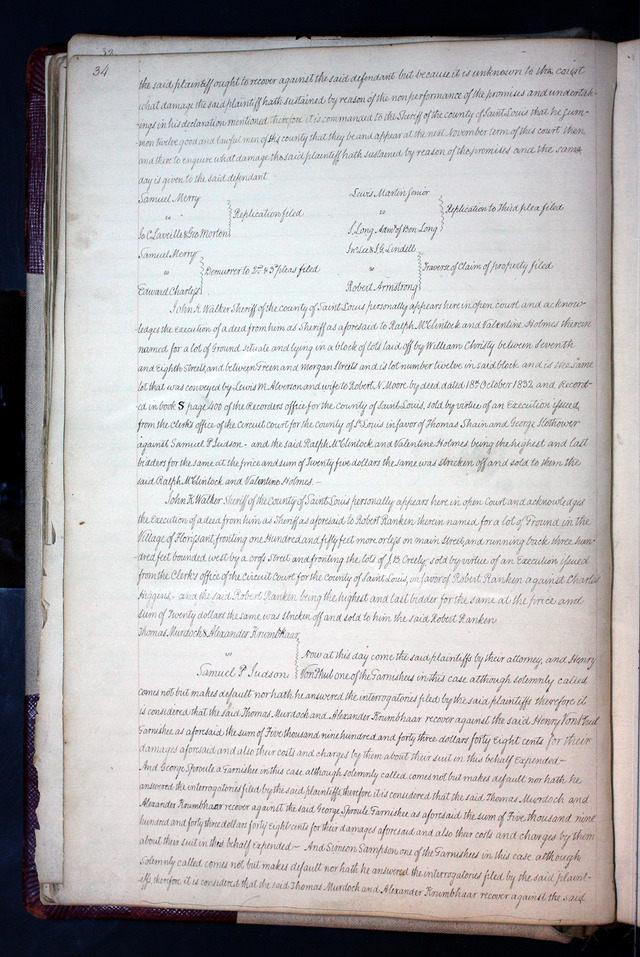 34
the said plaintiff ought to recover against the said defendant but because it is unknown to the court
what damage the said plaintiff hath sustained by reason of the nonperformance of the promises and undertak-
ings in his declaration mentioned therefore it is commanded to the Sheriff of the county of Saint Louis that he Sum-
mon twelve good and lawful men of his county that they be and appear at the next November term of this court then
and there to enquire what damage the said plaintiff hath sustained by reason of the promises and the same
day is given to the said defendant
Samuel Merry
vs
Jo C Laveille & Geo Morton
Replication filed
Samuel Merry
vs
Edward Charless
Demurrer to 2nd & 3d pleas filed
Lewis Martin Senior
vs
S Long Admr of Ben Long
Replication to Third plea filed
Jno Lee & J G Lindell
vs
Robert Armstrong
Traverse of Claim of property filed
John K Walker Sheriff of the county of Saint Louis personally appears here in open court and acknow-
ledges the Execution of a deed from him as Sheriff as aforesaid to Ralph McClintock and Valentine Holmes therein
named for a lot of Ground situate and lying in a block of lots laid off by William Christy between Seventh
and Eighth Streets and between Green and Morgan Streets and is lot number twelve in said block and is the same
lot that was conveyed by Lewis M Alverson and wife to Robert N Moore by deed dated 18th October 1832 and Record-
ed in book S page 400 of the Recorders office for the County of Saint Louis, sold by virtue of an Execution issued
from the clerks office of the Circuit court for the county of St Louis in favor of Thomas Shain and George Slothower
against Samuel P Judson - and the said Ralph McClintock and Valentine Holmes being the highest and last
bidders for the same at the price and sum of Twenty five dollars the same was stricken off and sold to them the
said Ralph McClintock and Valentine Holmes -
John K Walker Sheriff of the County of Saint Louis personally appears here in open Court and acknowledges
the Execution of a deed from him as Sheriff as aforesaid to Robert Ranken herein named for a lot of Ground in the
Village of Florissant fronting one Hundred and fifty feet more or less on main Street and running back three hun-
dred feet bounded west by a cross Street and fronting the lots of J. B. Creely sold by virtue of an Execution issued
from the Clerks office of the Circuit Court for the County of Saint Louis, in favor of Robert Ranken against Charles
Higgens - and the said Robert Ranken being the highest and last bidder for the same at the price and
sum of Twenty dollars the same was stricken off and sold to him the said Robert Ranken
Thomas Murdoch & Alexander Krumbhaar
vs
Samuel P Judson
Now at this day come the said plaintiffs by their attorney, and Henry
Von Phul one of the Garnishees in this case although solemnly called
comes not but makes default nor hath he answered the interrogatories filed by the said plaintiffs therefore it
is considered that the said Thomas Murdoch and Alexander Krumbhaar recover against the said Henry Von Phul
Garnishee as aforesaid the sum of Five thousand nine hundred and forty three dollars forty Eight cents for their
damages aforesaid and also their costs and charges by them about their suit in this behalf expended -
And George Sproule a Garnishee in this case although solemnly called comes not but makes default nor hath he
answered the interrogatories filed by the said plaintiffs therefore it is considered that the said Thomas Murdoch and
Alexander Krumbhaar recover against the said George Sproule Garnishee as aforesaid the sum of Five thousand nine
hundred and forty three dollars forty Eight cents for their damages aforesaid and also their costs and charges by them
about their suit in this behalf expended - And Simeon Sampson one of the Garnishees in this case although
Solemnly called comes not but makes default nor hath he answered the interrogatories filed by the said plaint-
iffs therefore it is considered that the said Thomas Murdoch and Alexander Krumbhaar recover against the said